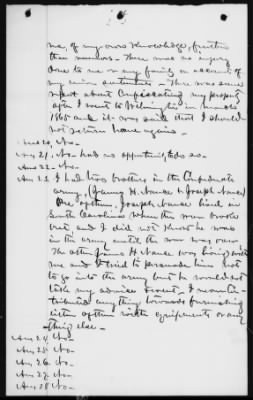 me, of my own knowledge,
than rumors - There was no injury
done to me or my family on account of
my union sentiments - There was some
report about Confiscating my property
after I went to Wilmington in March
1865 and it was said that I should
not return home again -
No -
21. No - had no opportunity to do so -
Ans 22. No -
Ans 23. I had two brothers in the Confederate
army, (James H. Nance & Joseph Nance)
One of them, Joseph Nance lived in
South Carolina when the war broke
out, and I did not know he was
in the army until the war was over.
The other James H. Nance was living with
me and I tried to persuade him not
to go into the army but he would not
take my advice I never Con-
tributed anything towards furnishing
either of them with equipments or any
thing else -
Ans 24. No -
Ans 25. No -
Ans 26. No -
Ans 27. No -
Ans 28. No -